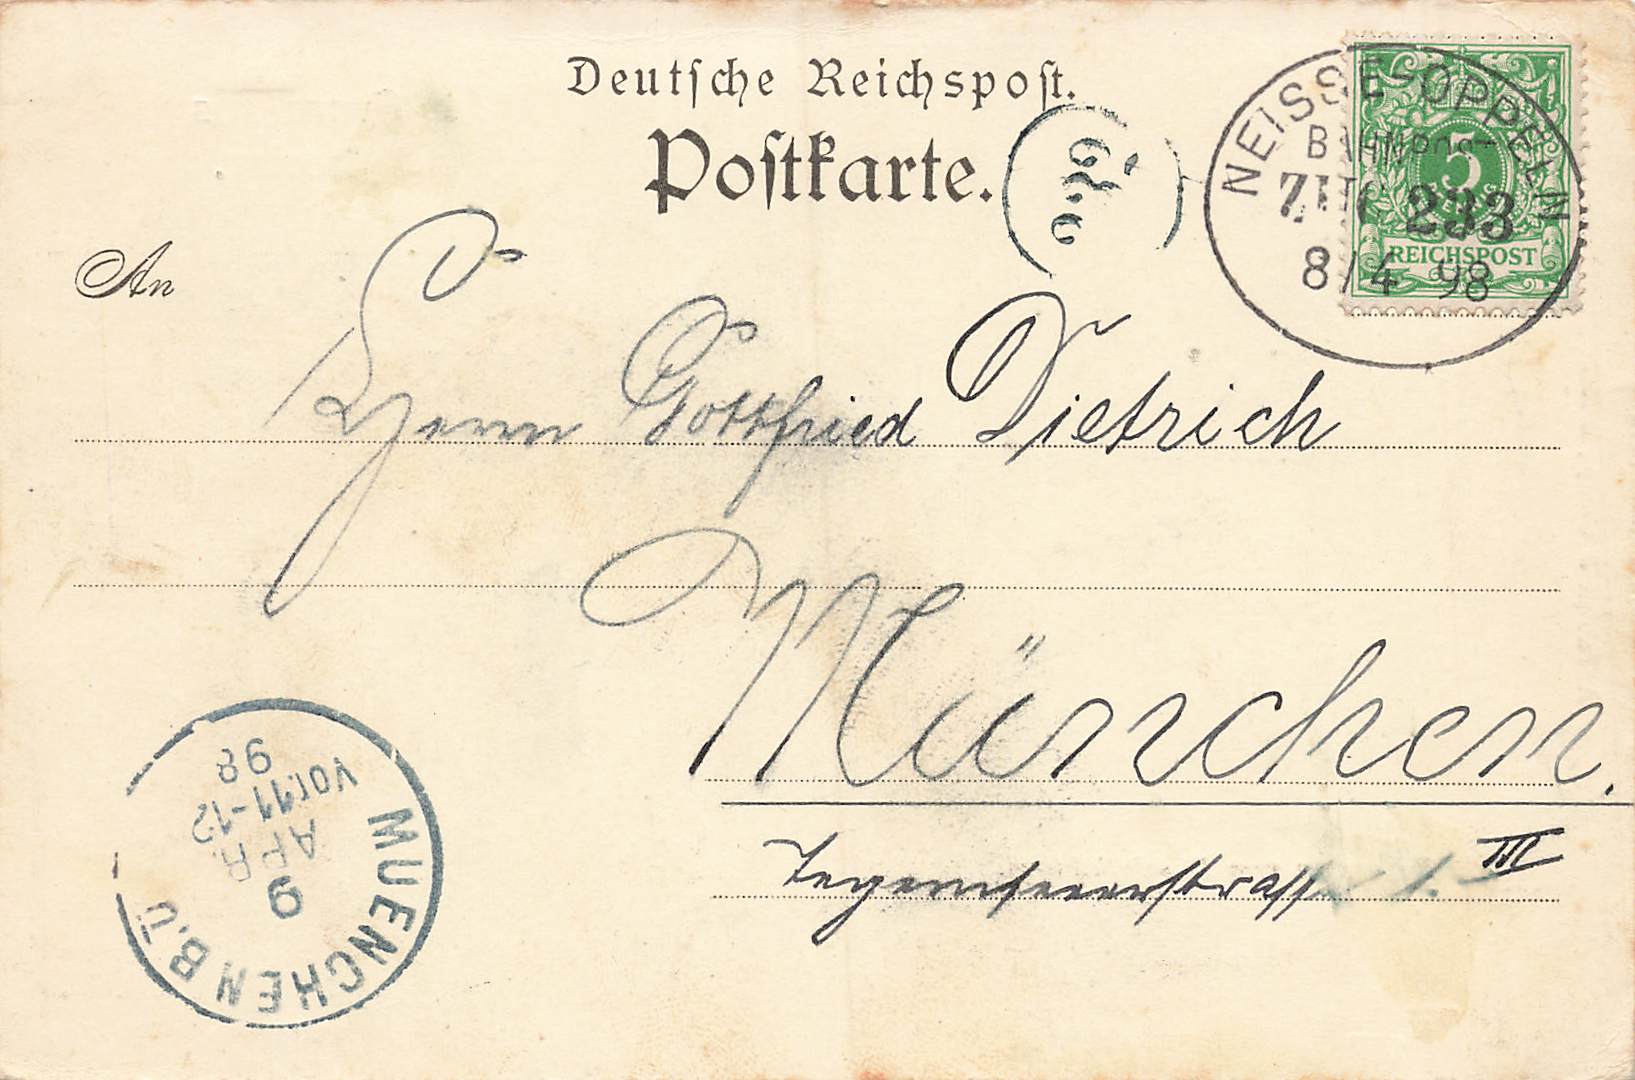 Deutsche Reichspost.
Postkarte.
NEISSE-OPPELN
BAHNPOST
ZUG 233
8/4 98
5
REICHSPOST
An
Herrn Gottfried Dietrich
München.
Tegernseerstrasse 1. III
MUENCHEN B.Ü
9
APR.
Vor 11-12
98